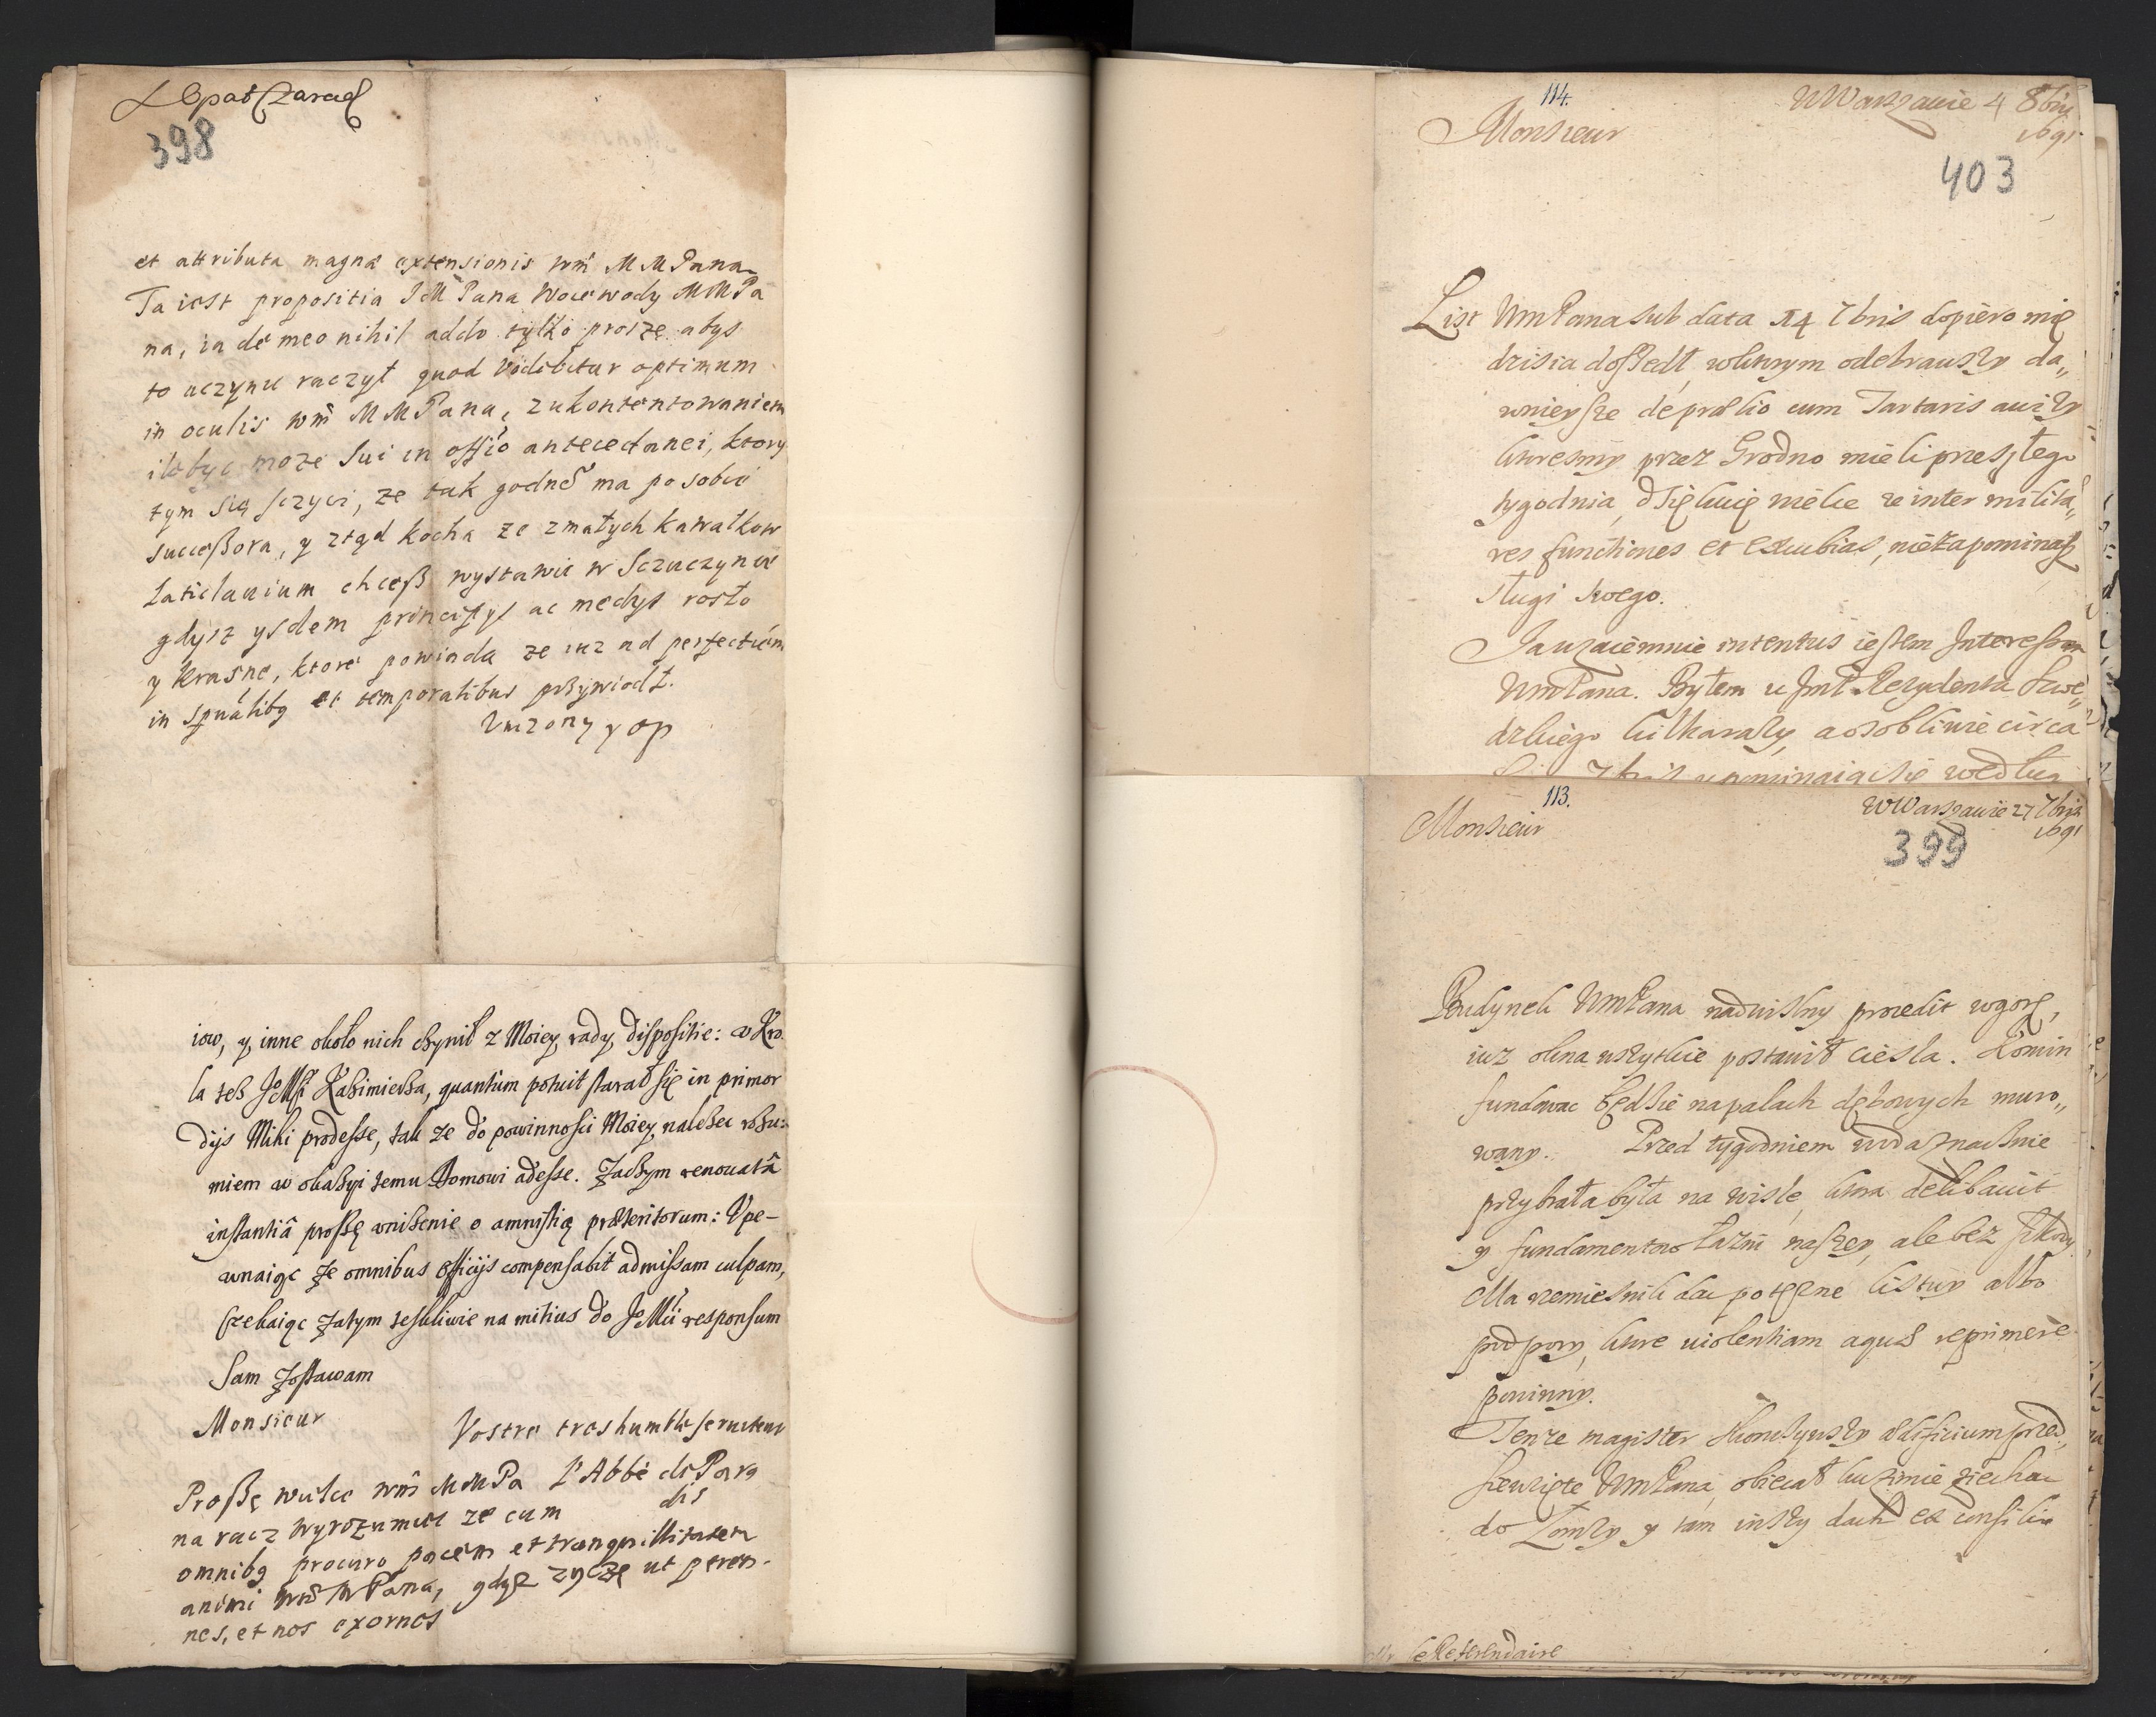 Opat Parad
398
et attributa magnæ extensionis wm̃ M M Pana
Ta iest propositia J M Pana Woiewody M M Pa
na, ia de meo nihil addo tylko proszę abys
to uczynić raczył quod videbitur optimum
in oculis wm̃ M M Pana, z ukontentowaniem
ile być może sui in offīo antecedanei, ktory
tym się sczyci, ze tak godneº ma po sobie
succeßora, y ztąd kocha ze zmałych kawałkow
Laticlauium chceß wystawic w Sczuczynie
gdysz ysdem principys ac medys rosło
y krasne, ktore powiada ze iuz ad perfectiom
in spũalibq et temporalibus przywiodł.
Vnizony y op
iow, y, inne około nich czynił z Moiey, rady, dispositie: a Kro
la też JeMści Kazimierza, quantum potuit starał się in primor
dijs Mihi prodesse, tak ze do powinnosci Moiey, należec rozu:
miem w okazyi temu Domowi adesse. Zaczym renouatâ
instantiâ proszę vnizenie o amnistią præteritorum: Vpe-
wnaiąc że omnibus officijs compensabit admissam culpam,
Czekaiąc zatym teskliwie na mitius do JeMći responsum
Sam zostawam
Monsieur
Vostre tres humble seruiteur
L'Abbé di Para
dis
Proßę wielce wm̃ M M Pa
na racz wyrozumieć ze cum
omnibq procuro pacem et tranquillitatem
animi wm̃ M Pana, gdyż zyczę ut peren-
nes, et nos exornes
114.
Monsieur
W Warszawie 4 8bris
1691
403
List WmPana sub data 14 7bris dopiero mię
dzisia doszedł, wktorym odebrawszy da„
wnieysze de prælio cum Tartaris awizy
ktoresmy przez Grodno mieli przeszłego
tygodnia, dziękuię wielce ze inter milita„
res functiones et excubias, nie zapominasz
sługi swego.
Ja wzaiemnie intentus iestem Interessom
WmPana. Byłem u JmP. Rezydenta Szwe„
dzkiego kilkarazy, a osobliwie circa
7bris upominaiąc się według
113.
Monsieur
W Warszawie 27 7bris
1691
399
Budynek WmPana nadwislny procedit wgorę,
iuz okna wszytkie postawił ciesla. Komin
fundowac będzie na palach dębowych muro„
wany. Przed tygodniem woda znacznie
przybrała była na Wisle, ktora delibauit
y fundamentow łazni naszey, ale bez szkody,
Ma rzemieslnik dac potęzne listwy albo
podpory, ktore violentiam aquæ reprimere
powinny.
Tenze magister skonczywszy ædificium przed„
sięwzięte WmPana, obiecał ku zimie ziechac
do Łomzy y tam inszy dach ex consilio
Mr le Referendaire